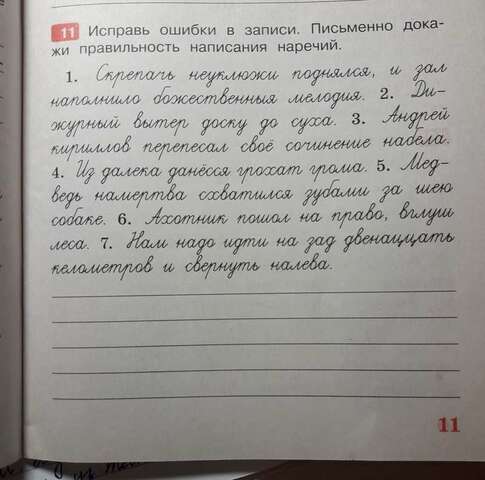 11 Исправь ошибки в записи. Письменно дока-
жи правильность написания наречий.
1. Скрепачь неуклюжи поднялся, и зал
наполнило божественныя мелодия. 2. Ди-
журный вытер доску до суха. 3. Андрей
кириллов перепесал своё сочинение набела.
4. Из далека данёсся грохат грома. 5. Мед-
ведь намертва схватился зубами за шею
собаке. 6. Ахотник пошол на право, вглушь
леса. 7. Нам надо идти на зад двенаццать
келометров и свернуть налева.
11